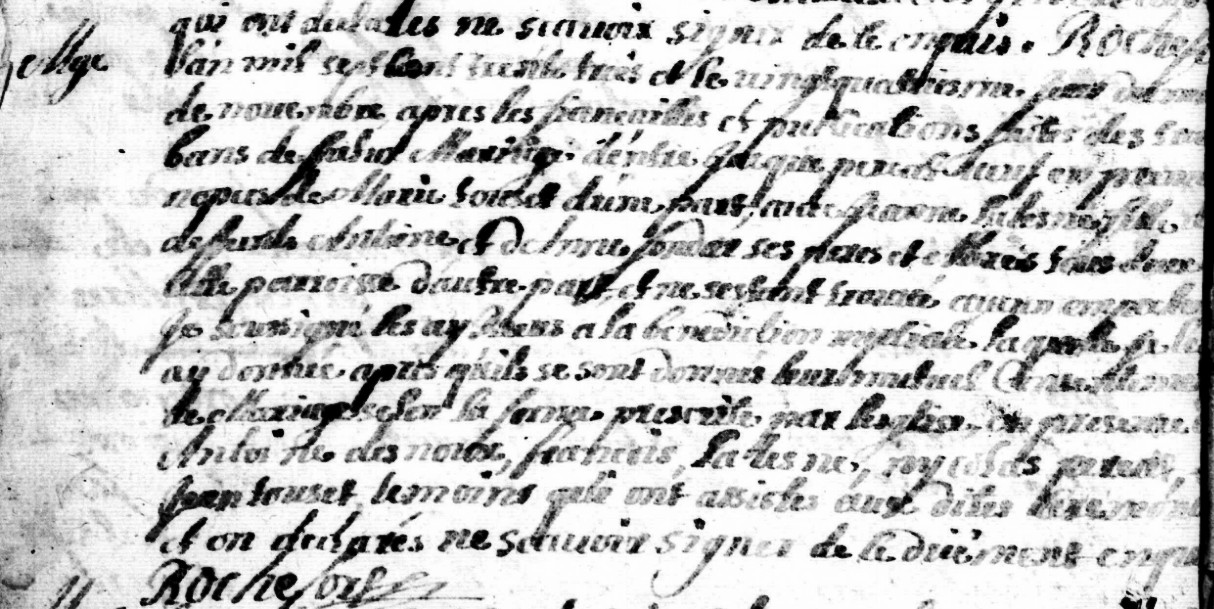 qui ont declarés ne scauoir signer de ce enquis. Rochefort
Mge
L'an mil sept cent trente trois et le uingt quatriesme jour du mois
de nouembre apres les fiançailles et publications faites des trois
bans de futur Mariage d'entre jacque veuf en premieres
nopces de Marie touset d'une part, et de jeanne Lalesne, fille
de feu Antoine et de ses peres et tous deux
de cette parroisse d'autre part, et ne s'estant trouué aucun empechement
je soussigné les ay admis a la benediction nuptiale, laquelle je leur
ay donnée apres qu'ils se sont donnés leur mutuel Consentement
de Mariage selon la forme prescrite par l'eglise en presence
Antoine des noux, françois Lalesne, nycolas
jean touset, temoins qui ont assistes aux dites ceremonies
et on declarés ne scauoir signer de ce duëment enquis
Rochefort